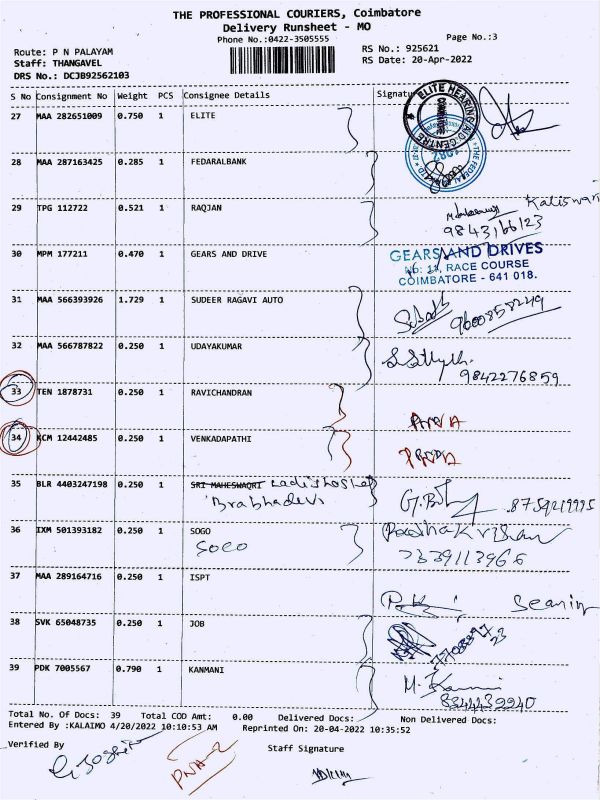 THE PROFESSIONAL COURIERS, Coimbatore
Delivery Runsheet - MO
Phone No.:0422-3505555
Page No.:3
Route: P N PALAYAM
RS No.: 925621
Staff: THANGAVEL
RS Date: 20-Apr-2022
DRS No.: DCJB92562103
S No Consignment No Weight PCS Consignee Details Signatu
27 MAA 282651009 0.750 1 ELITE
ELITE HEARING AID CENTRE
28 MAA 287163425 0.285 1 FEDARALBANK
THE FEDERAL
29 TPG 112722 0.521 1 RAQJAN
Kaliswari
9843166123
30 MPM 177211 0.470 1 GEARS AND DRIVE
GEARS AND DRIVES
No: 11, RACE COURSE
COIMBATORE - 641 018.
31 MAA 566393926 1.729 1 SUDEER RAGAVI AUTO
9600858249
32 MAA 566787822 0.250 1 UDAYAKUMAR
9842276859
33 TEN 1878731 0.250 1 RAVICHANDRAN
34 KCM 12442485 0.250 1 VENKADAPATHI
35 BLR 4403247198 0.250 1 SRI MAHESWAQRI Ladishostel
Brabhadevi
8759219995
36 IXM 501393182 0.250 1 SOGO
Soco
Radhakrishnan
7339113966
37 MAA 289164716 0.250 1 ISPT
38 SVK 65048735 0.250 1 JOB
39 PDK 7005567 0.790 1 KANMANI
8344439940
Total No. Of Docs: 39 Total COD Amt: 0.00 Delivered Docs: Non Delivered Docs:
Entered By :KALAIMO 4/20/2022 10:10:53 AM Reprinted On: 20-04-2022 10:35:52
Verified By
Staff Signature
PNA-2